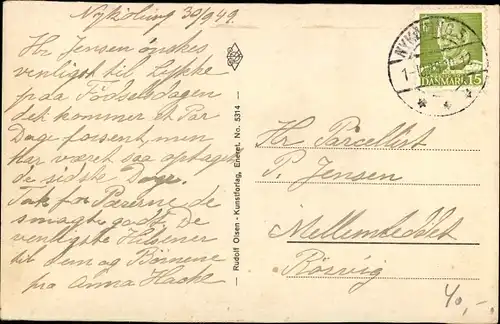 Nykøbing 30/9 49.
Hr Jensen ønskes
venligst til Lykke
paa Fødselsdagen
det kommer et Par
Dage forsent, men
har været saa optaget
de sidste Dage.
Tak for Pærerne de
smagte godt. De
venligste Hilsener
til dem og Børnene
fra Anna
Rudolf Olsen - Kunstforlag, Eneret. No. 5314
NYKØB
DANMARK 15
Hr Parcellist
P. Jensen
Mellemleddet
Rørvig
40,-